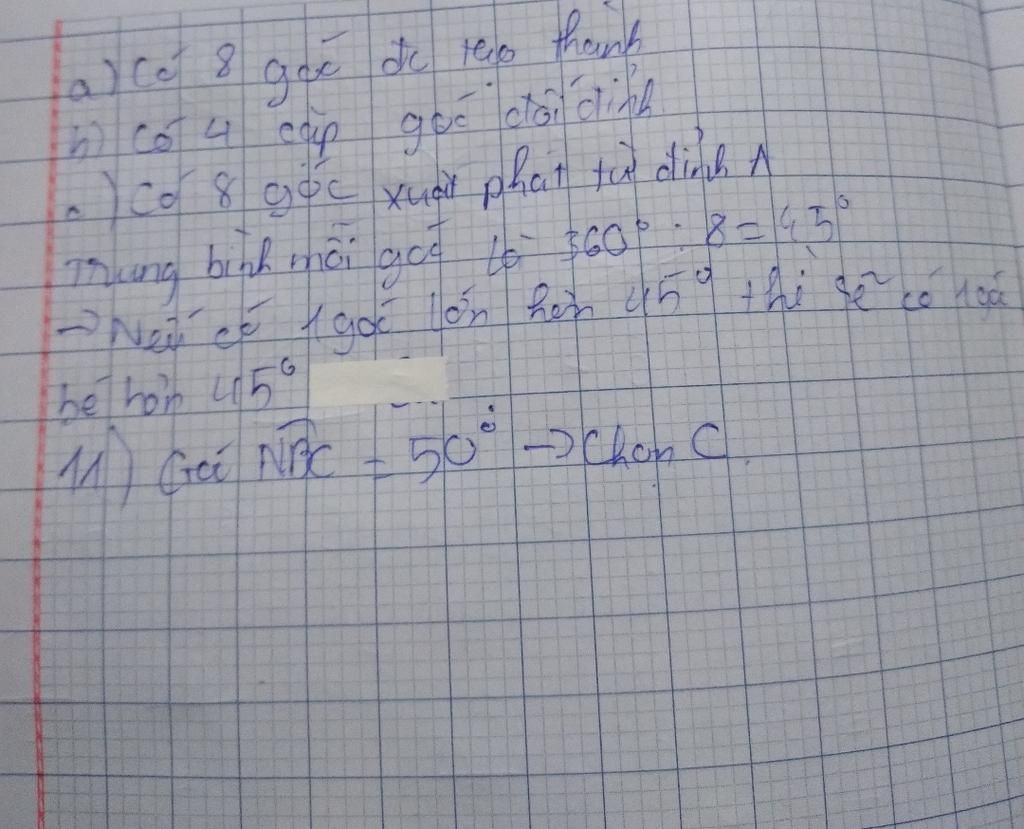 a) Có 8 góc đc tạo thành
b) Có 4 cặp góc đối đỉnh
c) Có 8 góc xuất phát từ đỉnh A
Trung bình mỗi góc là 360° : 8 = 45°
→ Nếu có 1 góc lớn hơn 45° thì sẽ có 1 gó
bé hơn 45°
11) Góc NBC = 50° → Chọn C.